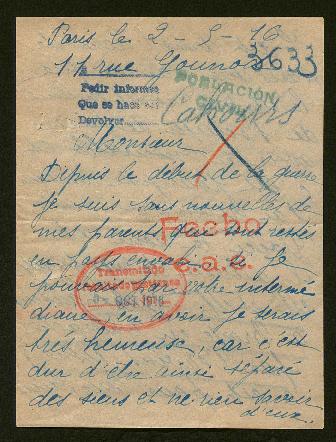 Paris le 2-9-16
11 rue Gounod
3633
Pedir informes
Que se hace
Devolver
POBLACIÓN
CIVIL
Monsieur
Depuis le début de la guerre
je suis sans nouvelles de
mes parents que sont restés
en pays envahi si je
Fecho
pouvais par votre intermé
Transmitido
diaire, en avoir je serais
OCT 1916
très heureuse, car c'est
dur d'etre ainsi séparé
des siens et ne rien savoir
d'eux.